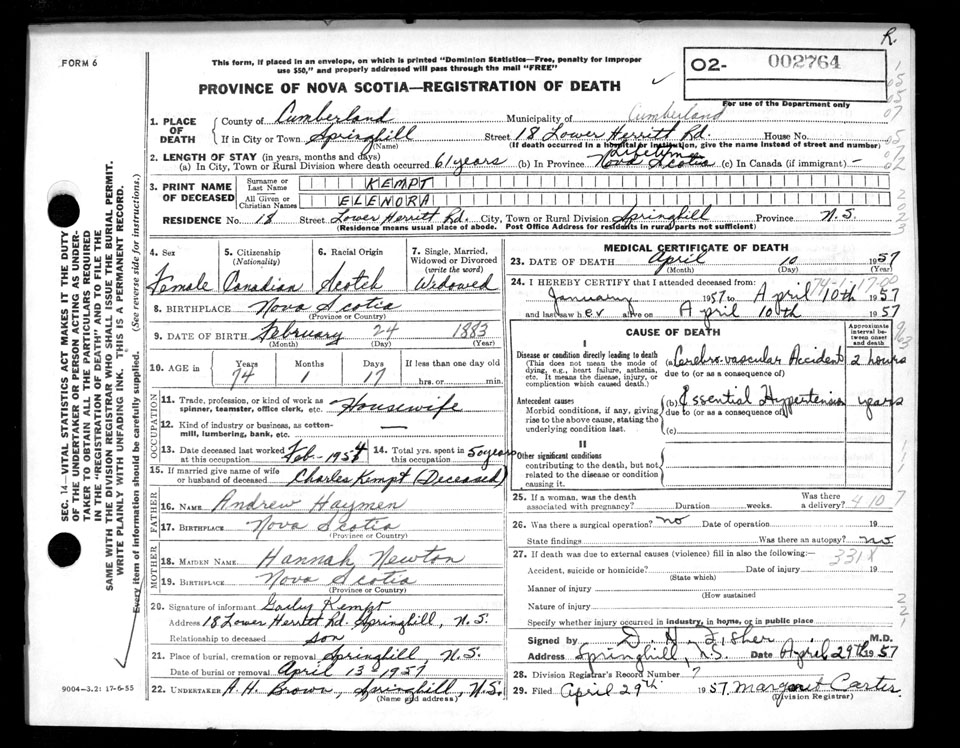 R.
FORM 6
This form, if placed in an envelope, on which is printed "Dominion Statistics—Free, penalty for improper
use $50," and properly addressed will pass through the mail "FREE"
02- 002764
For use of the Department only
PROVINCE OF NOVA SCOTIA—REGISTRATION OF DEATH
1. PLACE OF DEATH
County of Cumberland Municipality of Cumberland
If in City or Town Springhill Street 18 Lower Herritt Rd. House No.
(Name) (If death occurred in a hospital or institution, give the name instead of street and number)
2. LENGTH OF STAY (in years, months and days)
(a) In City, Town or Rural Division where death occurred 61 years (b) In Province Lifetime Nova Scotia (c) In Canada (if immigrant) -
3. PRINT NAME OF DECEASED
Surname or Last Name KEMPT
All Given or Christian Names ELENORA
RESIDENCE No. 18 Street Lower Herritt Rd. City, Town or Rural Division Springhill Province N.S.
(Residence means usual place of abode. Post Office Address for residents in rural parts not sufficient)
4. Sex Female
5. Citizenship (Nationality) Canadian
6. Racial Origin Scotch
7. Single, Married, Widowed or Divorced (write the word) Widowed
8. BIRTHPLACE Nova Scotia
(Province or Country)
9. DATE OF BIRTH February 24 1883
(Month) (Day) (Year)
10. AGE in Years 74 Months 1 Days 17 If less than one day old
hrs. or min.
OCCUPATION
11. Trade, profession, or kind of work as
spinner, teamster, office clerk, etc. Housewife
12. Kind of industry or business, as cotton-
mill, lumbering, bank, etc. —
13. Date deceased last worked at this occupation Feb- 1954
14. Total yrs. spent in this occupation 50 years
15. If married give name of wife
or husband of deceased Charles Kempt (Deceased)
FATHER
16. NAME Andrew Haymen
17. BIRTHPLACE Nova Scotia
(Province or Country)
MOTHER
18. MAIDEN NAME Hannah Newton
19. BIRTHPLACE Nova Scotia
(Province or Country)
20. Signature of informant Kempt
Address 18 Lower Herritt Rd. Springhill, N.S.
Relationship to deceased Son
21. Place of burial, cremation or removal Springhill N.S.
Date of burial or removal April 13 - 1957
22. UNDERTAKER A. H. Brown, Springhill, N.S.
(Name and address)
MEDICAL CERTIFICATE OF DEATH
23. DATE OF DEATH April 10 1957
(Month) (Day) (Year)
24. I HEREBY CERTIFY that I attended deceased from:
January 1957 to April 10th 1957
and last saw her alive on April 10th 1957
CAUSE OF DEATH
Approximate interval between onset and death
I
Disease or condition directly leading to death
(This does not mean the mode of
dying, e.g., heart failure, asthenia,
etc. It means the disease, injury, or
complication which caused death.)
(a) Cerebro-vascular Accident 2 hours
due to (or as a consequence of)
Antecedent causes
Morbid conditions, if any, giving
rise to the above cause, stating the
underlying condition last.
(b) Essential Hypertension years
due to (or as a consequence of)
(c)
II
Other significant conditions
contributing to the death, but not
related to the disease or condition
causing it.
25. If a woman, was the death
associated with pregnancy? Duration weeks. Was there a delivery?
4107
26. Was there a surgical operation? no Date of operation 19
State findings Was there an autopsy? no
27. If death was due to external causes (violence) fill in also the following:—
331X
Accident, suicide or homicide? Date of injury 19
(State which)
Manner of injury
(How sustained
Nature of injury
Specify whether injury occurred in industry, in home, or in public place
Signed by D. H. Fisher M.D.
Address Springhill, N.S. Date April 29th 1957
28. Division Registrar's Record Number 7
29. Filed April 29th 1957 Margaret Carter
(Division Registrar)
SEC. 14—VITAL STATISTICS ACT MAKES IT THE DUTY
OF THE UNDERTAKER OR PERSON ACTING AS UNDER-
TAKER TO OBTAIN ALL THE PARTICULARS REQUIRED
IN THE "REGISTRATION OF DEATH" AND TO FILE THE
SAME WITH THE DIVISION REGISTRAR WHO SHALL ISSUE THE BURIAL PERMIT.
WRITE PLAINLY WITH UNFADING INK. THIS IS A PERMANENT RECORD.
Every item of information should be carefully supplied. (See reverse side for instructions.)
9004—3.21 17-6-55